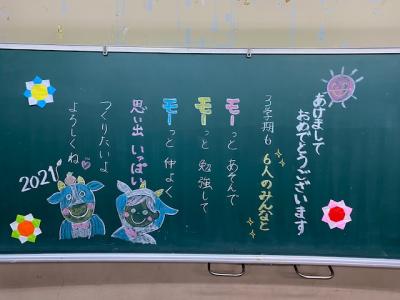 あけまして
おめでとうございます
3学期も 6人のみんなと
モーっと あそんで
モーっと 勉強して
モーっと 仲よく
思い出 いっぱい
つくりたいよ
よろしくね
2021